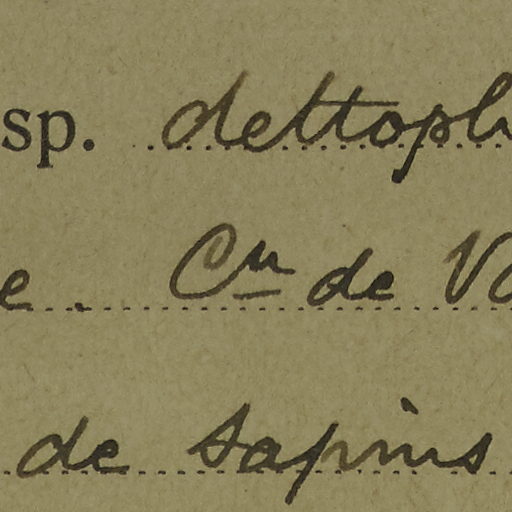 sp. dettoph
e. Cⁿ de Vo
de sapins